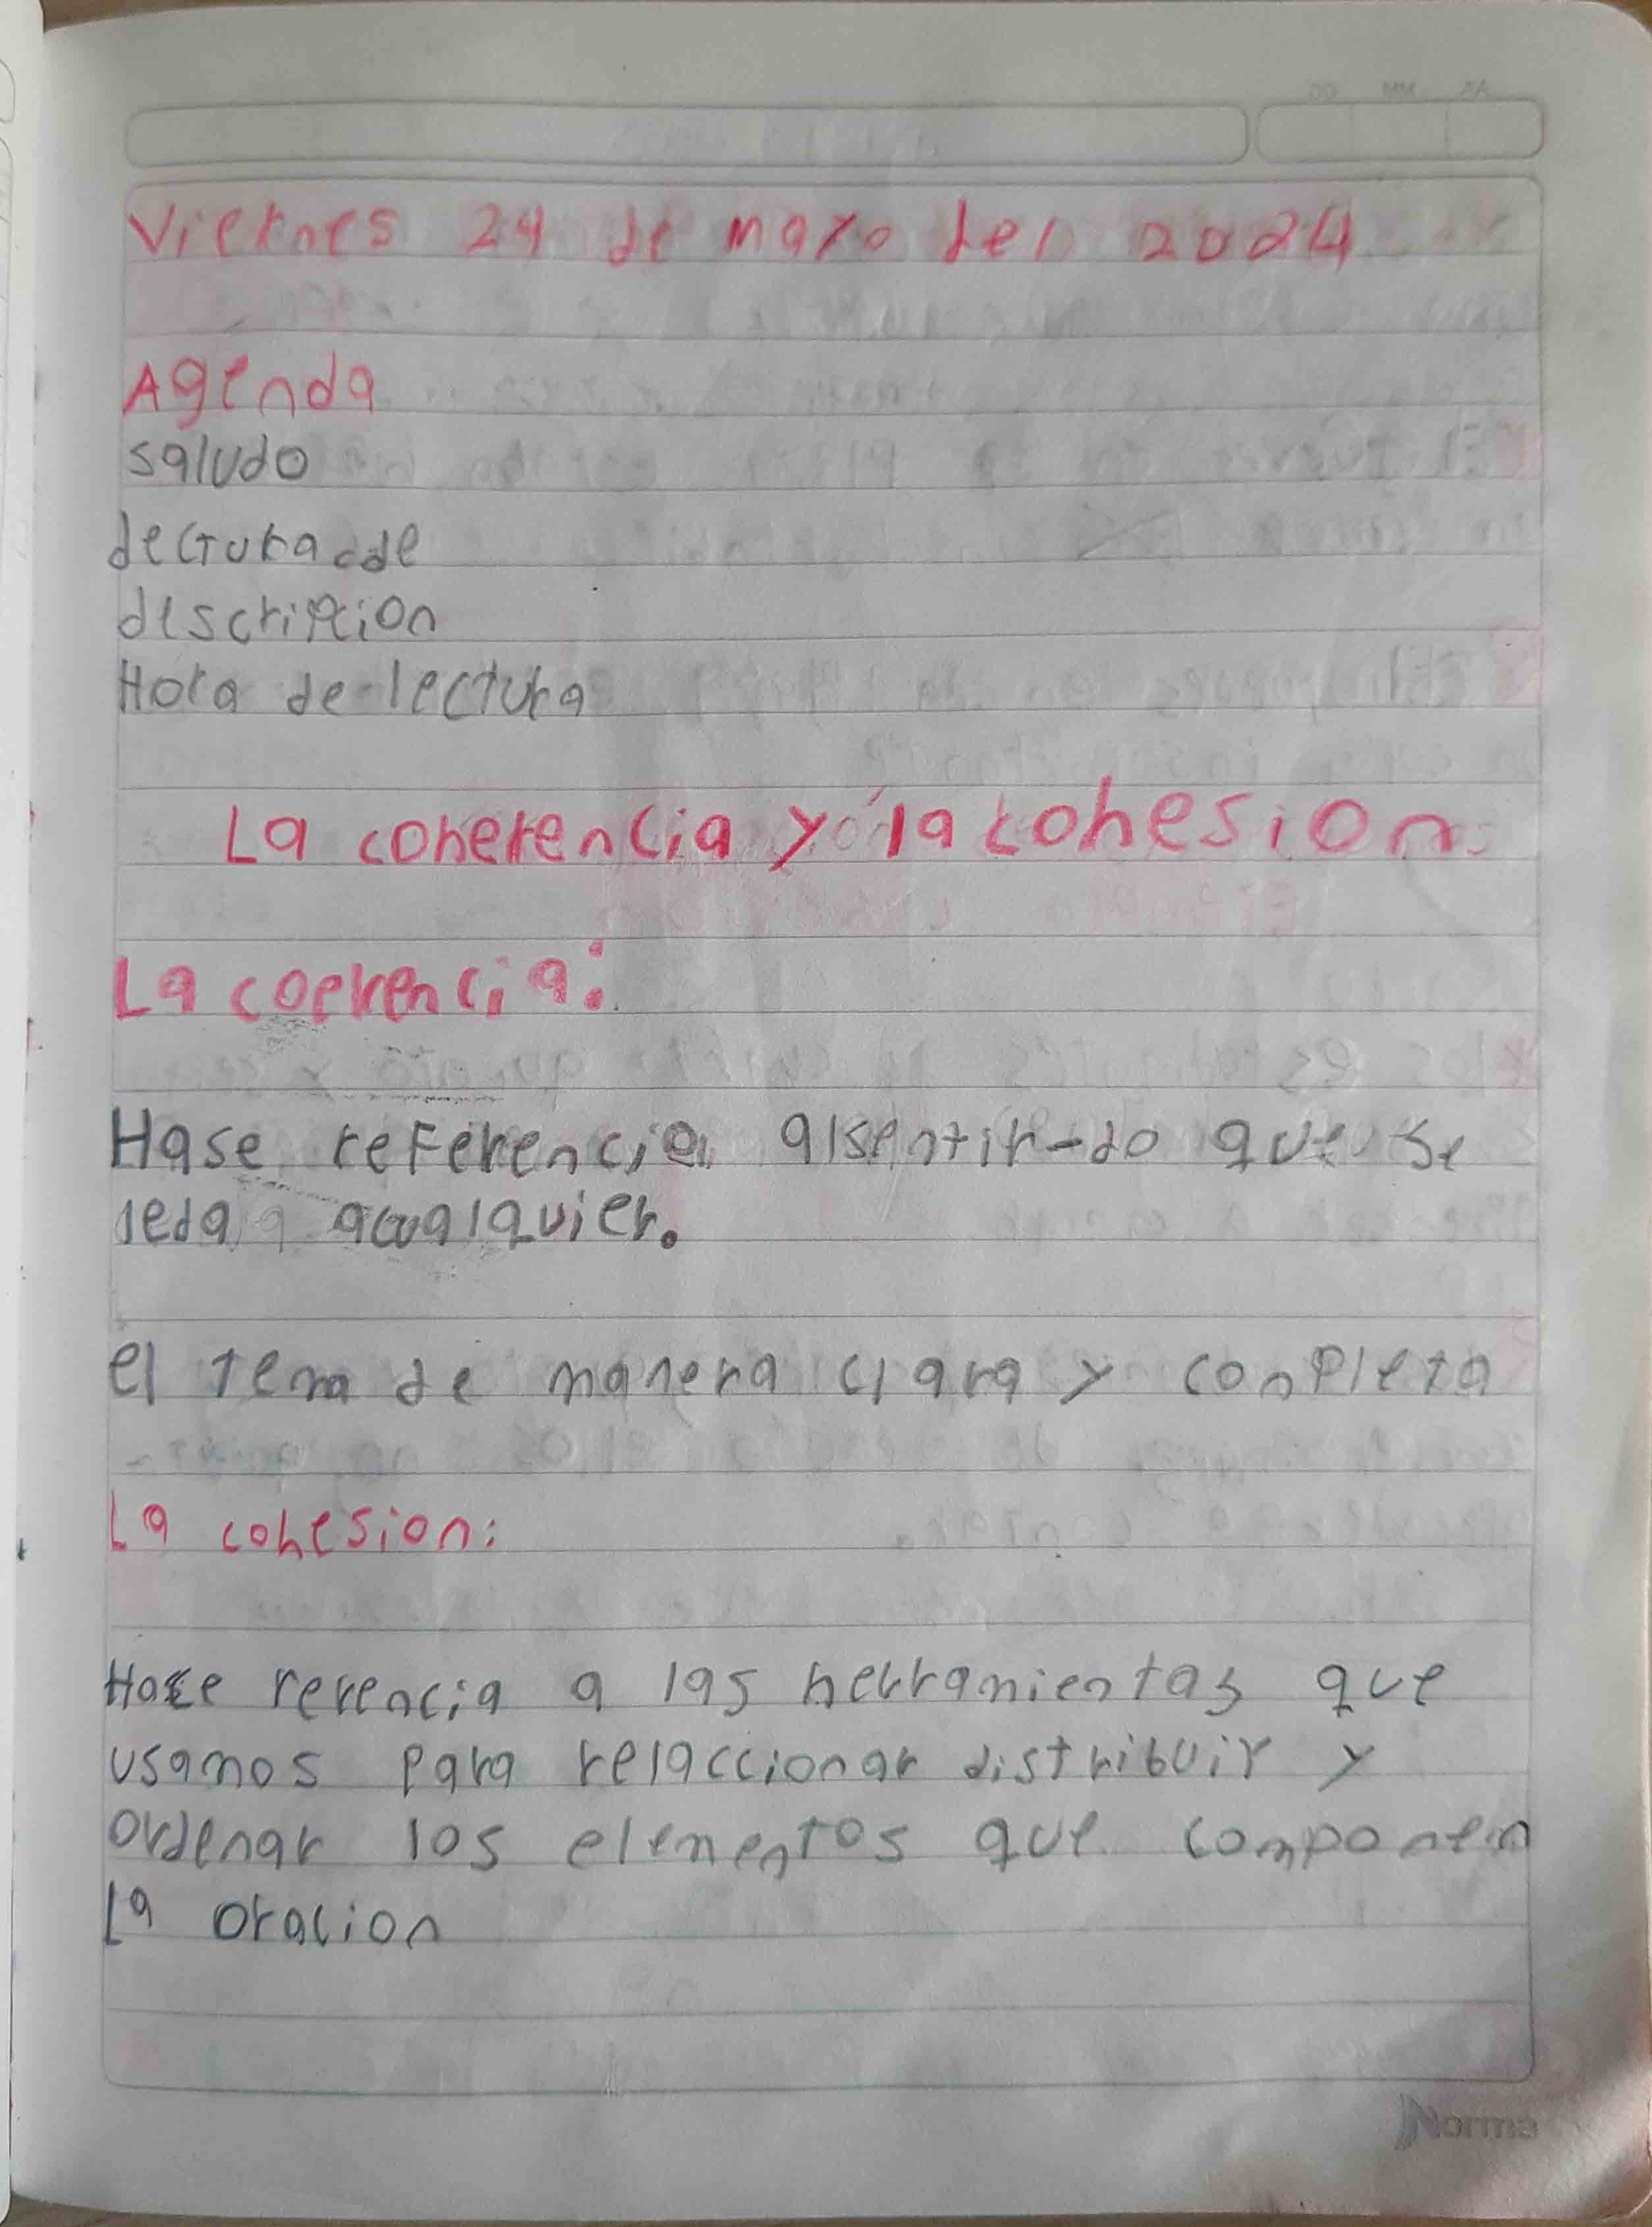 Viernes 24 de mayo del 2024
Agenda
saludo
dectura de
descripcion
Hora de lectura
La coherencia y la cohesion
La coerencia:
Hase referencia alsentir-do que se
leda a acualquier.
el tema de manera clara y conpleta
La cohesion:
Hace rerencia a las herramientas que
usamos para relaccionar distribuir y
ordenar los elementos que componen
La oracion
Norma